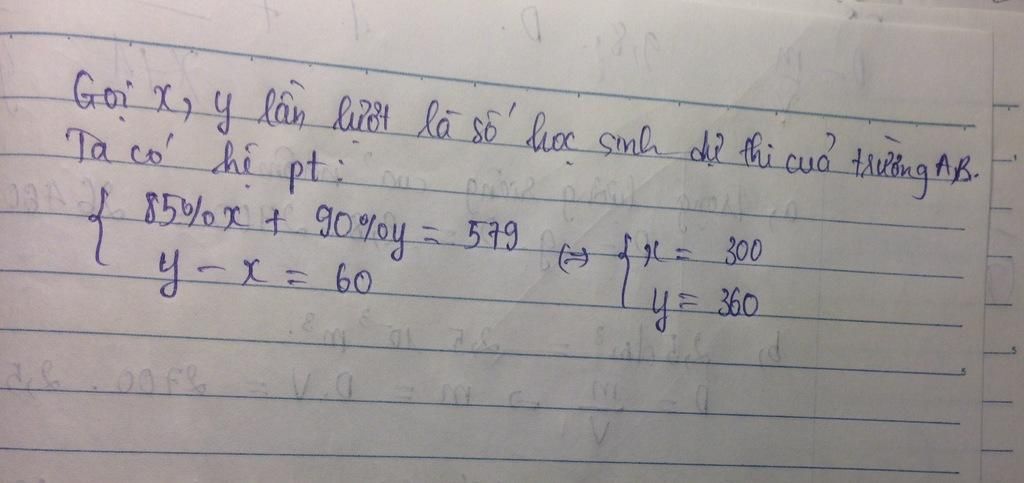 Gọi x, y lần lượt là số học sinh dự thi cuả trường A, B.
Ta có hệ pt:
{ 85%x + 90%y = 579 (=) { x = 300
y - x = 60 y = 360